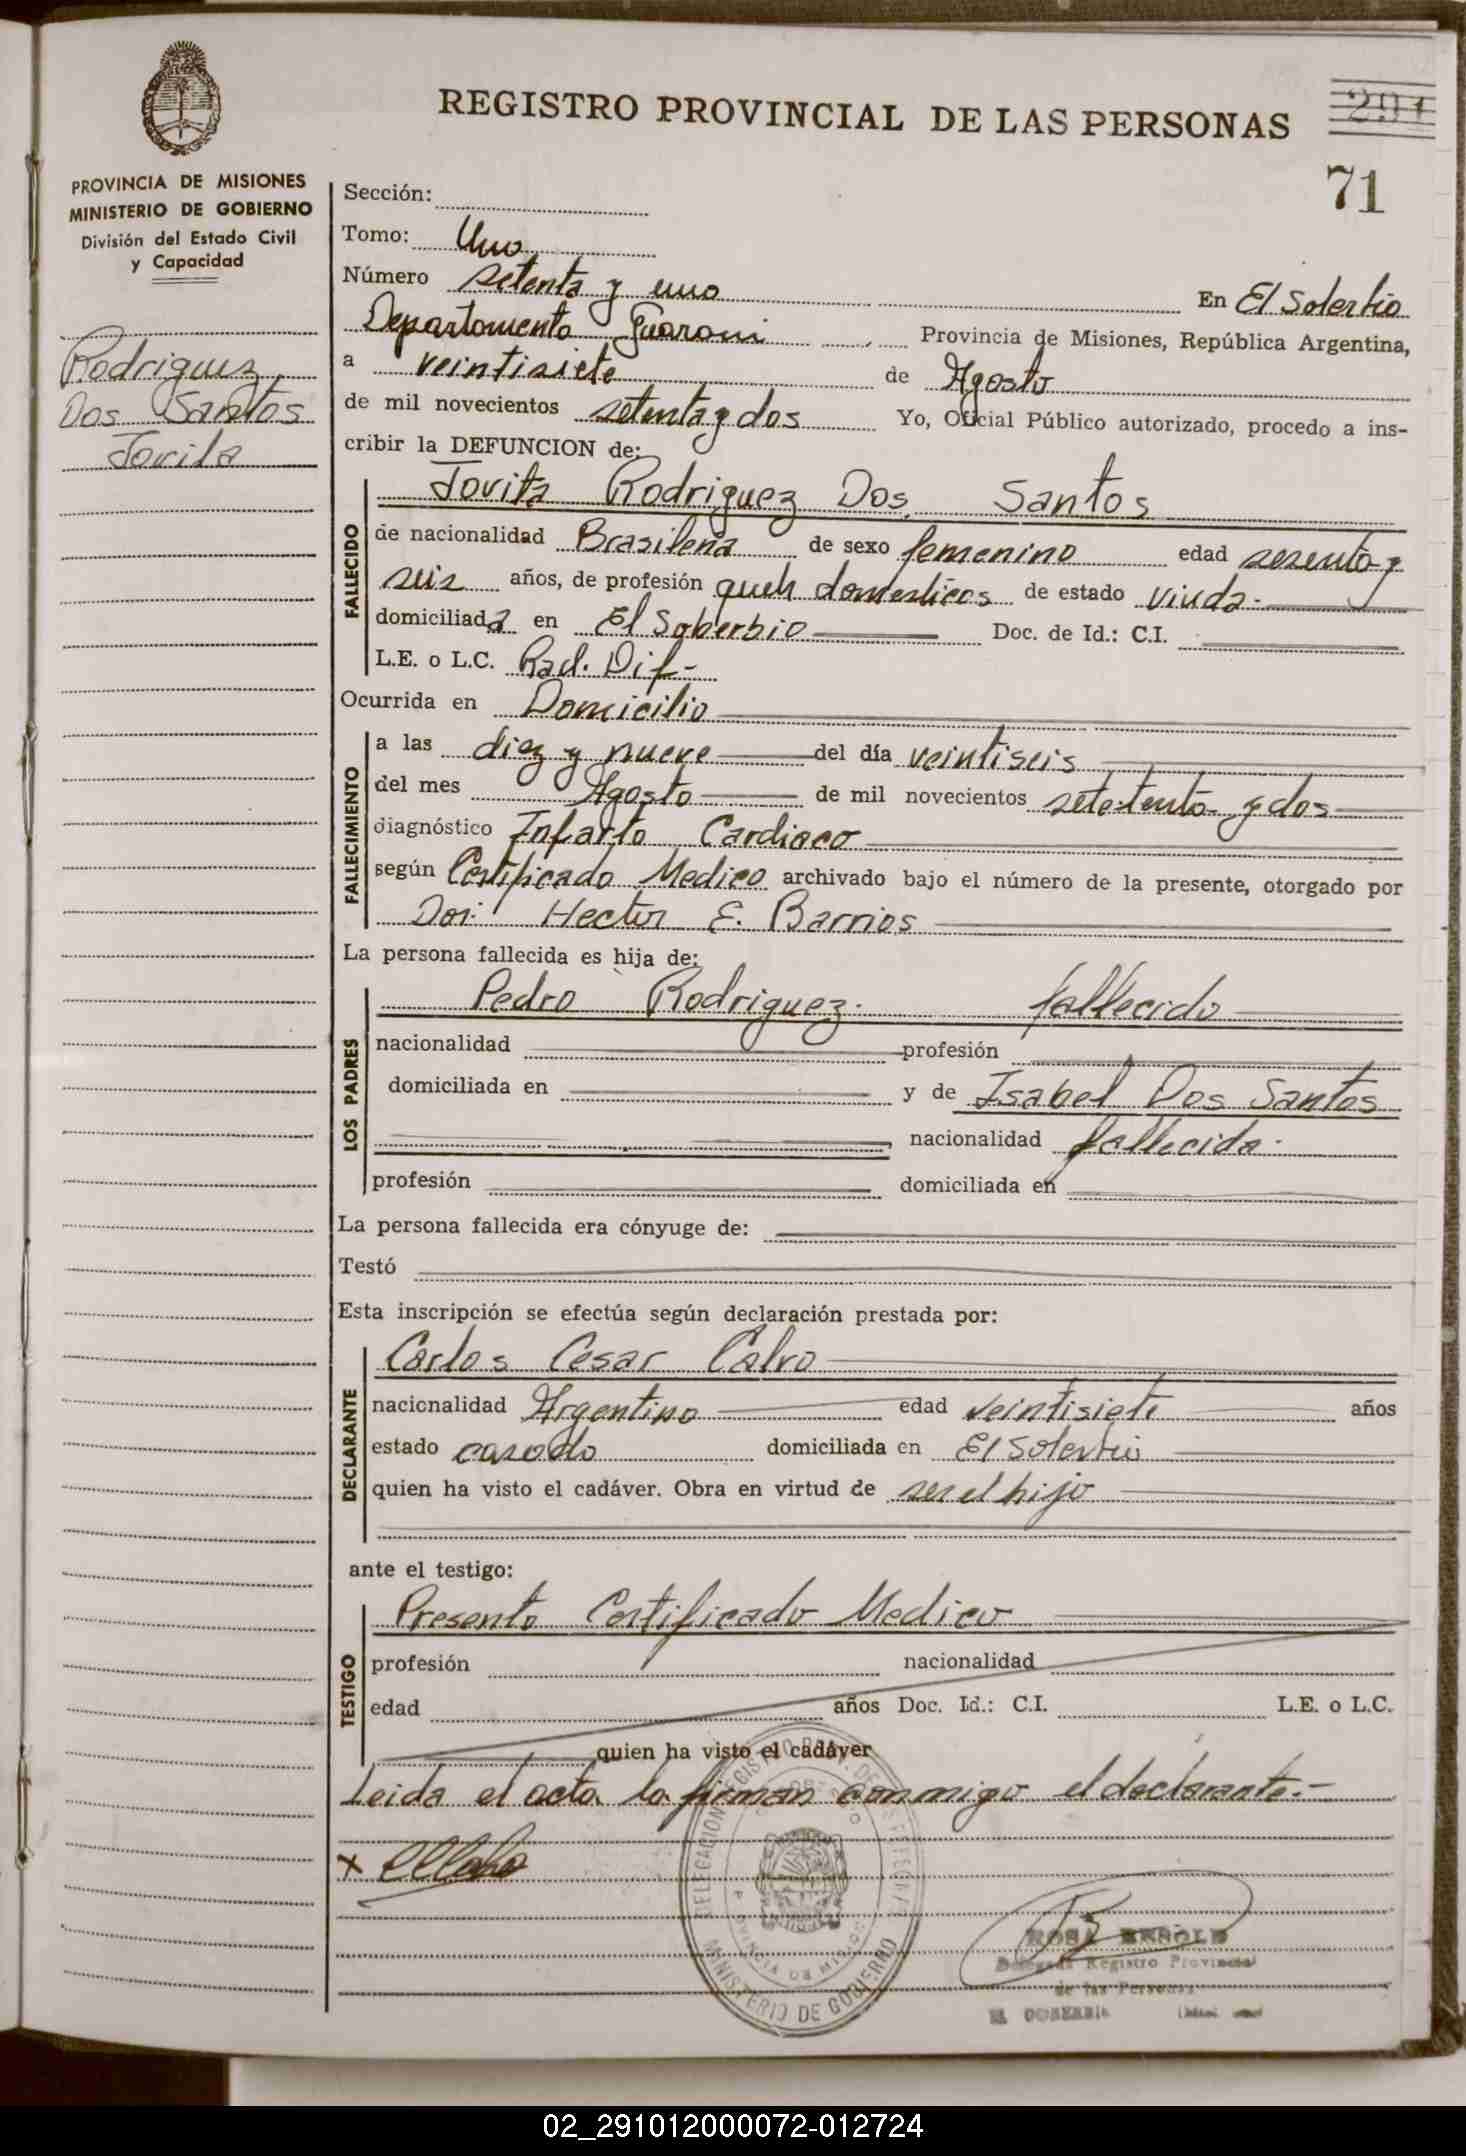 REGISTRO PROVINCIAL DE LAS PERSONAS
291
71
PROVINCIA DE MISIONES
MINISTERIO DE GOBIERNO
División del Estado Civil
y Capacidad
Rodriguez
Dos Santos
Jovita
Sección:
Tomo: Uno
Número setenta y uno En El Soberbio
Departamento Guarani Provincia de Misiones, República Argentina,
a veintisiete de Agosto
de mil novecientos setenta y dos Yo, Oficial Público autorizado, procedo a ins-
cribir la DEFUNCION de:
Jovita Rodriguez Dos Santos
FALLECIDO
de nacionalidad Brasileña de sexo femenino edad sesenta y
seis años, de profesión queh domesticos de estado viuda.
domiciliada en El Soberbio Doc. de Id.: C.I.
L.E. o L.C. Rad. Dif-
Ocurrida en Domicilio
FALLECIMIENTO
a las diez y nueve del día veintiseis
del mes Agosto de mil novecientos setetenta y dos
diagnóstico Infarto Cardiaco
según Certificado Medico archivado bajo el número de la presente, otorgado por
Hector E. Barrios
La persona fallecida es hija de:
LOS PADRES
Pedro Rodriguez. fallecido
nacionalidad profesión
domiciliada en y de Isabel Dos Santos
nacionalidad fallecida.
profesión domiciliada en
La persona fallecida era cónyuge de:
Testó
Esta inscripción se efectúa según declaración prestada por:
DECLARANTE
Carlos Cesar Calvo
nacionalidad Argentino edad veintisiete años
estado casado domiciliada en El Soberbio
quien ha visto el cadáver. Obra en virtud de ser el hijo
ante el testigo:
TESTIGO
Presento Certificado Medico
profesión nacionalidad
edad años Doc. Id.: C.I. L.E. o L.C.
quien ha visto el cadáver
Leida el acta la firman conmigo el declarante.-
x
MINISTERIO DE GOBIERNO
PROVINCIA DE MISIONES
ROSA
Delegada Registro Provincial
de las Personas
EL SOBERBIO
02_291012000072-012724